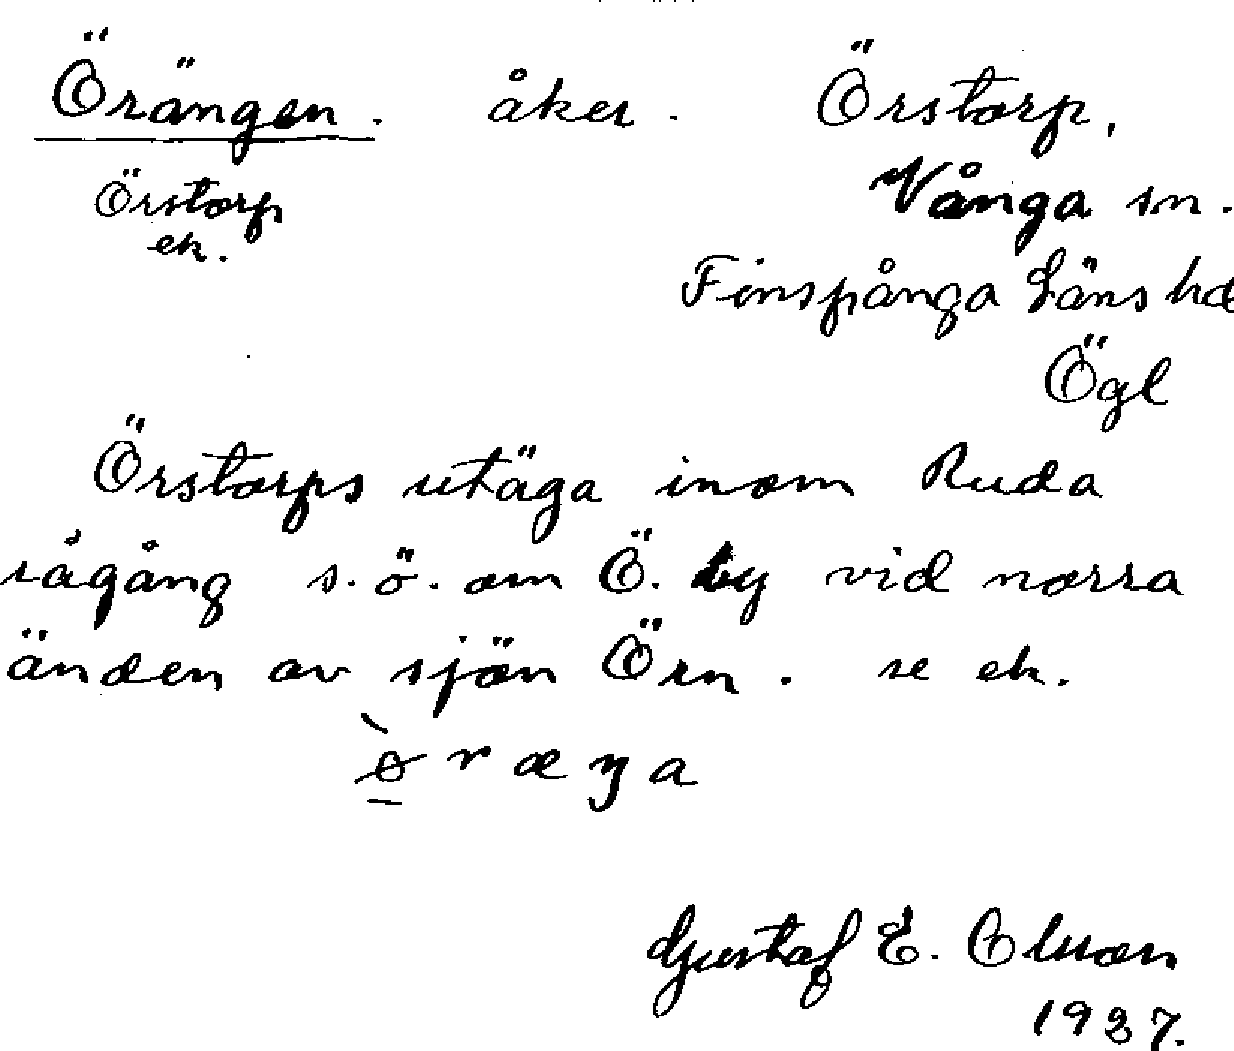 Örängen. åker. Örstorp,
Örstorp Vånga sn.
ek.
Finspånga läns hd
Ögl
Örstorps utäga inom Ruda
rågång s.ö. om Ö. by vid norra
änden av sjön Örn. se ek.
Gustaf E. Olsson
1937.